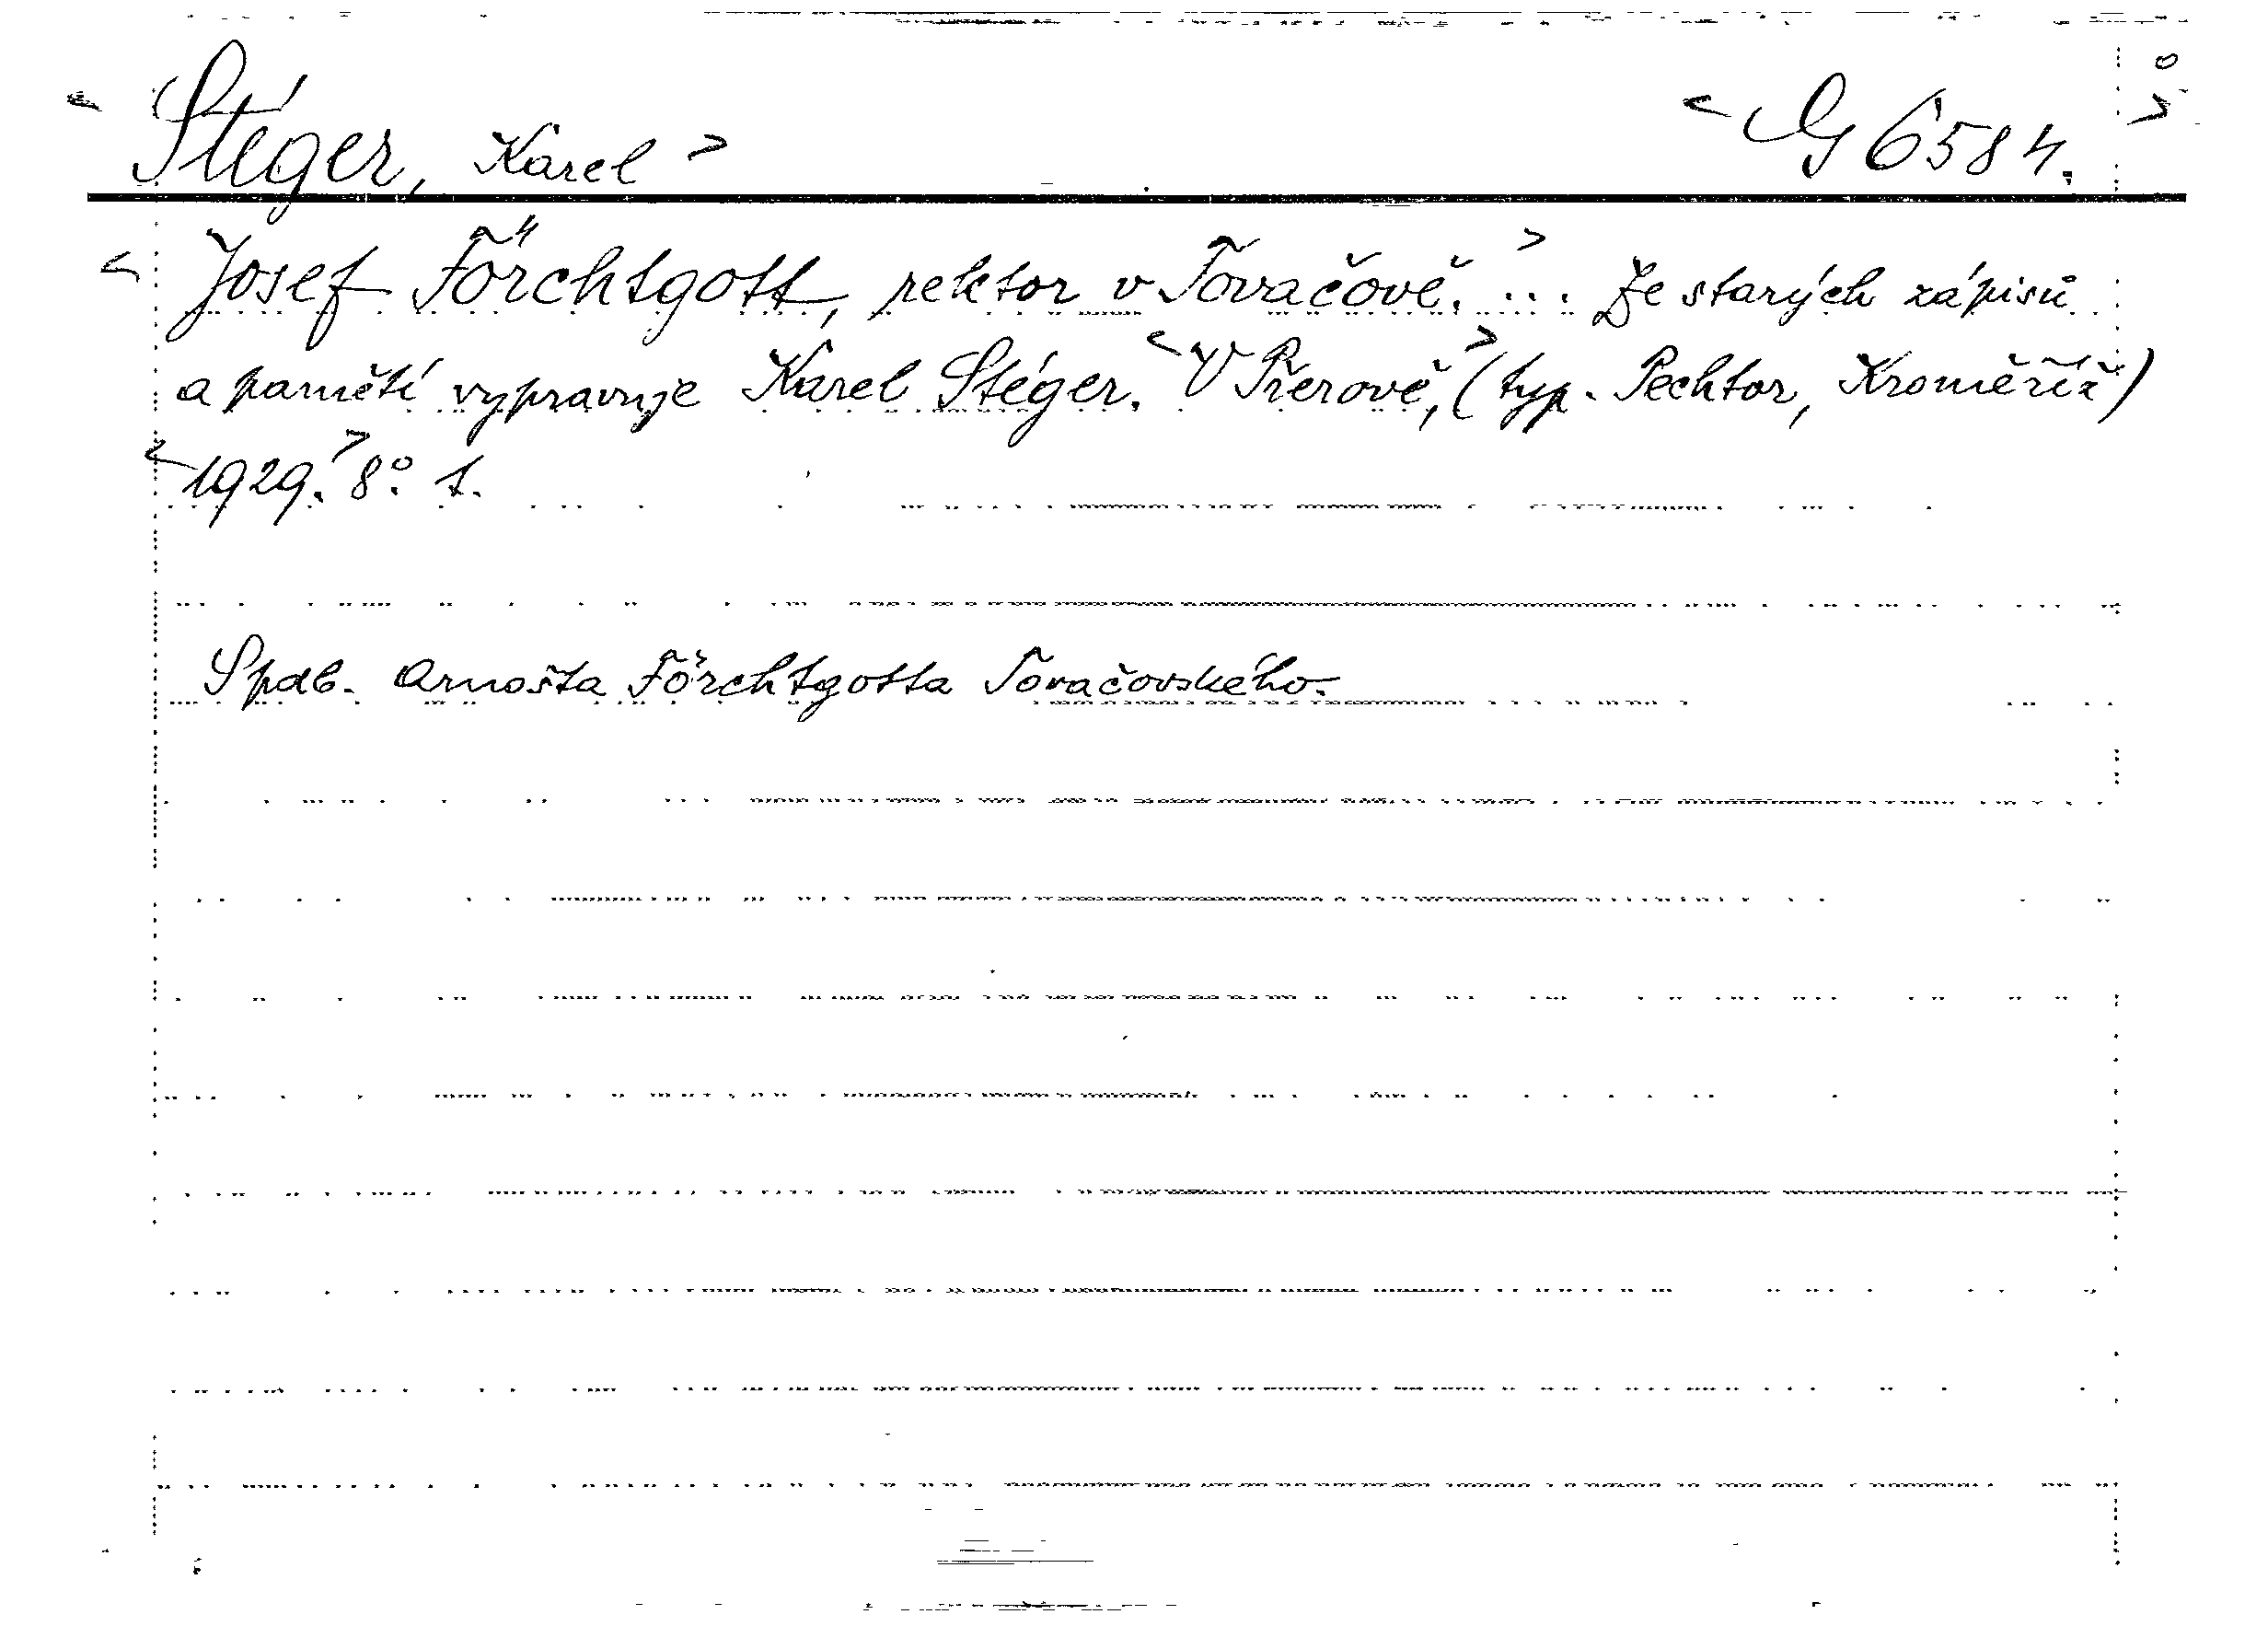 < Stéger, Karel > < G 6584. >
< Josef Förchtgott, rektor v Tovačově. > ... Ze starých zápisů
a pamětí vypravuje Karel Stéger. < V Přerově, > (typ. Pechtor, Kroměříž)
< 1929. > 8°. 1.
Spdb. Arnošta Förchtgotta Tovačovského.